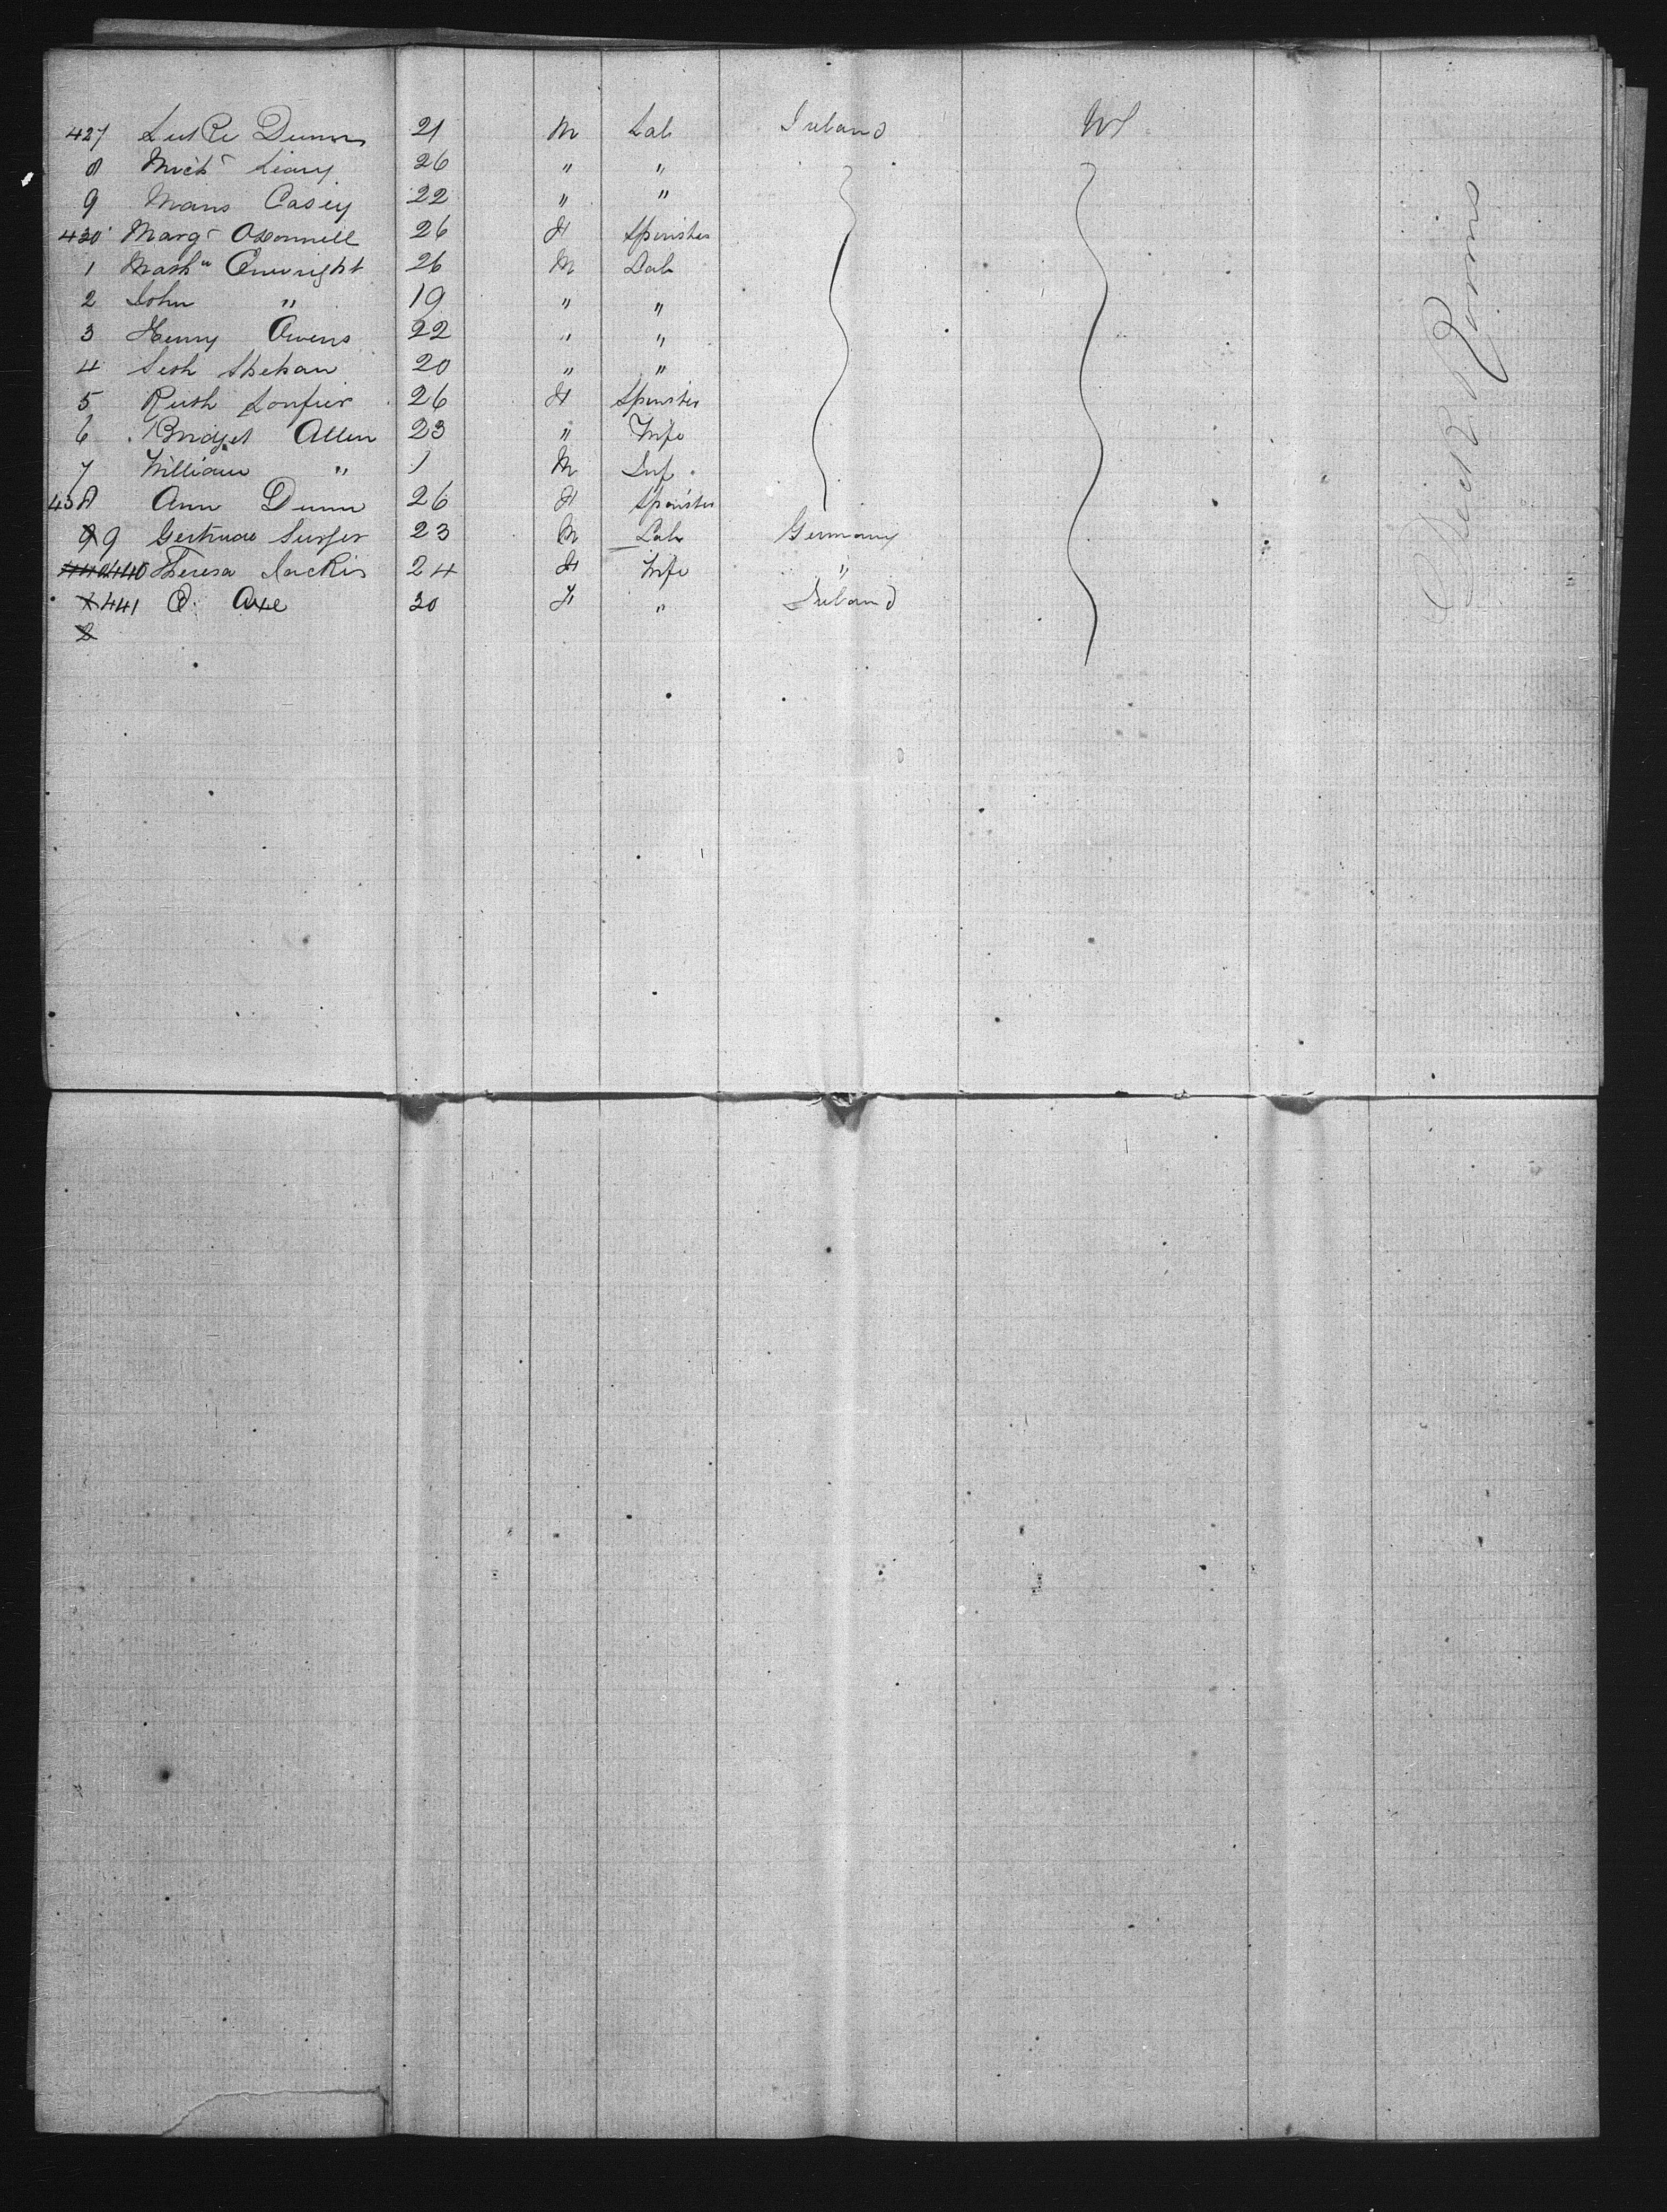 427 Luke Dunn 21 M Lab Ireland US
8 Mich^l Leary 26 " "
9 Mans Casey 22 " "
430 Marg^t OConnell 26 F Spinster
1 Math^w Enwright 26 M Lab
2 John " 19 " "
3 Henry Owens 22 " "
4 Shehan 20 " "
5 Ruth 26 F Spinster
6 Bridget Allen 23 " Wife
7 William " 1 M Inf
438 Ann Dunn 26 F Spinster
9 Gertrude 23 M Lab Germany
440 Theresa Jackis 24 F Wife "
441 C. Axe 30 F " Ireland
2